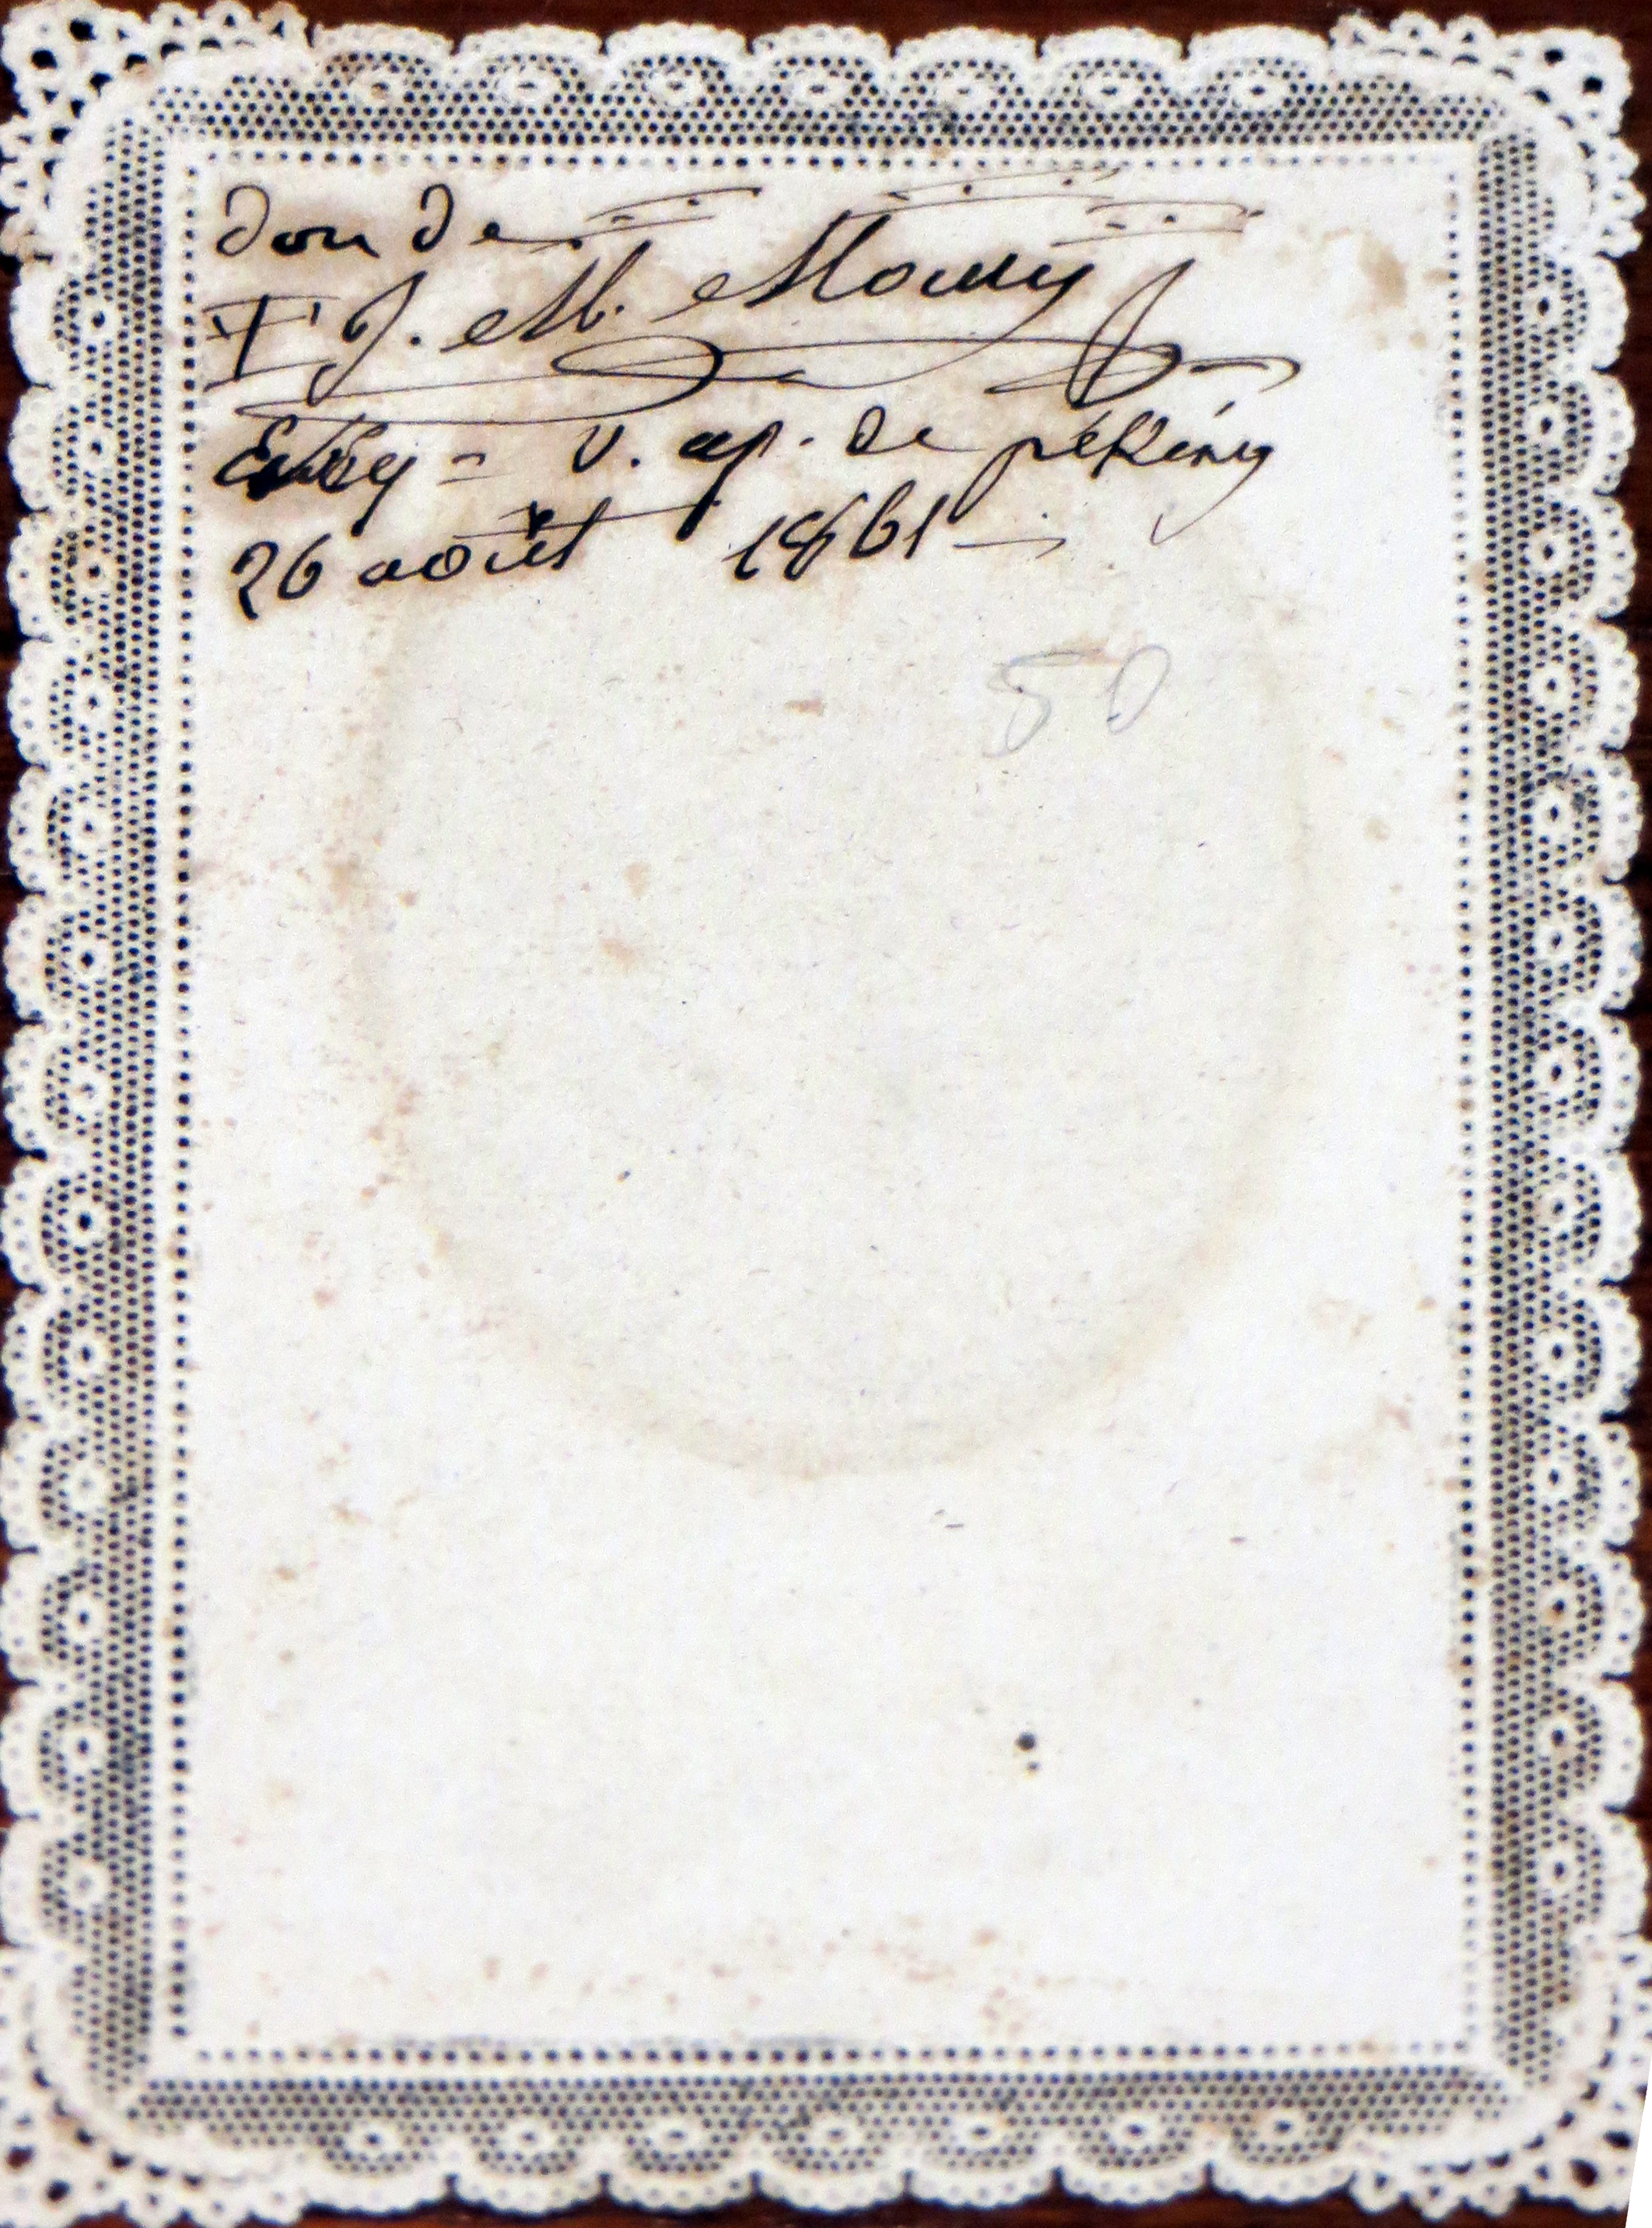 don de
+ J. M. Mouly
Evêq= v. ap. de péking
26 août 1861
50